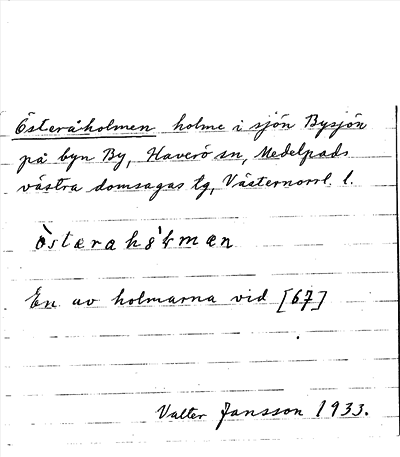 Österåholmen holme i sjön Bysjön
på byn By, Haverö sn, Medelpads
västra domsagas tg, Västernorrl. l.
En av holmarna vid [67]
Valter Jansson 1933.